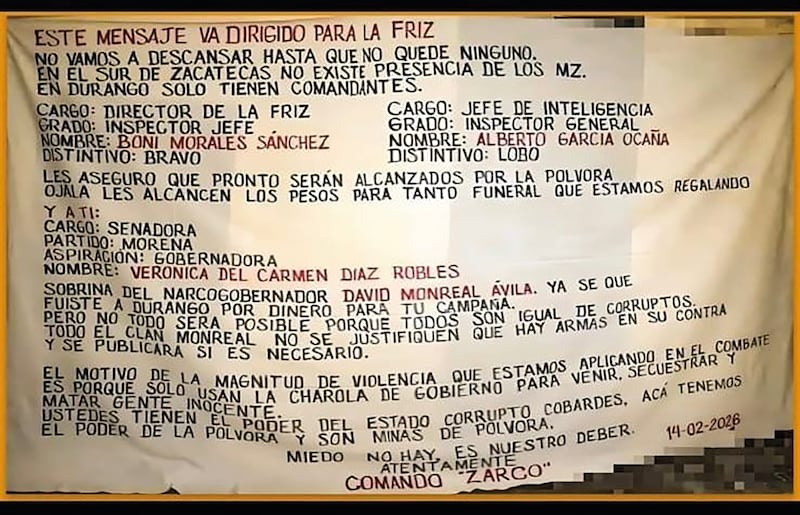 ESTE MENSAJE VA DIRIGIDO PARA LA FRIZ
NO VAMOS A DESCANSAR HASTA QUE NO QUEDE NINGUNO.
EN EL SUR DE ZACATECAS NO EXISTE PRESENCIA DE LOS MZ.
EN DURANGO SOLO TIENEN COMANDANTES.
CARGO: DIRECTOR DE LA FRIZ
GRADO: INSPECTOR JEFE
NOMBRE: BONI MORALES SÁNCHEZ
DISTINTIVO: BRAVO
CARGO: JEFE DE INTELIGENCIA
GRADO: INSPECTOR GENERAL
NOMBRE: ALBERTO GARCIA OCAÑA
DISTINTIVO: LOBO
LES ASEGURO QUE PRONTO SERÁN ALCANZADOS POR LA POLVORA
OJALA LES ALCANCEN LOS PESOS PARA TANTO FUNERAL QUE ESTAMOS REGALANDO
Y A TI:
CARGO: SENADORA
PARTIDO: MORENA
ASPIRACIÓN: GOBERNADORA
NOMBRE: VERONICA DEL CARMEN DIAZ ROBLES
SOBRINA DEL NARCOGOBERNADOR DAVID MONREAL ÁVILA. YA SE QUE
FUISTE A DURANGO POR DINERO PARA TU CAMPAÑA.
PERO NO TODO SERA POSIBLE PORQUE TODOS SON IGUAL DE CORRUPTOS.
TODO EL CLAN MONREAL NO SE JUSTIFIQUEN QUE HAY ARMAS EN SU CONTRA
Y SE PUBLICARA SI ES NECESARIO.
EL MOTIVO DE LA MAGNITUD DE VIOLENCIA QUE ESTAMOS APLICANDO EN EL COMBATE
ES PORQUE SOLO USAN LA CHAROLA DE GOBIERNO PARA VENIR, SECUESTRAR Y
MATAR GENTE INOCENTE.
USTEDES TIENEN EL PODER DEL ESTADO CORRUPTO COBARDES, ACÁ TENEMOS
EL PODER DE LA POLVORA Y SON MINAS DE POLVORA.
MIEDO NO HAY, ES NUESTRO DEBER. 14-02-2026
ATENTAMENTE
COMANDO "ZARGO"